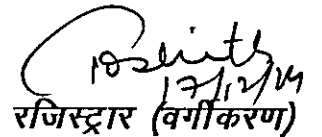 17/12/19
रजिस्ट्रार (वर्गीकरण)